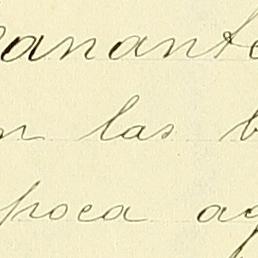 anante
n las b
poca ag